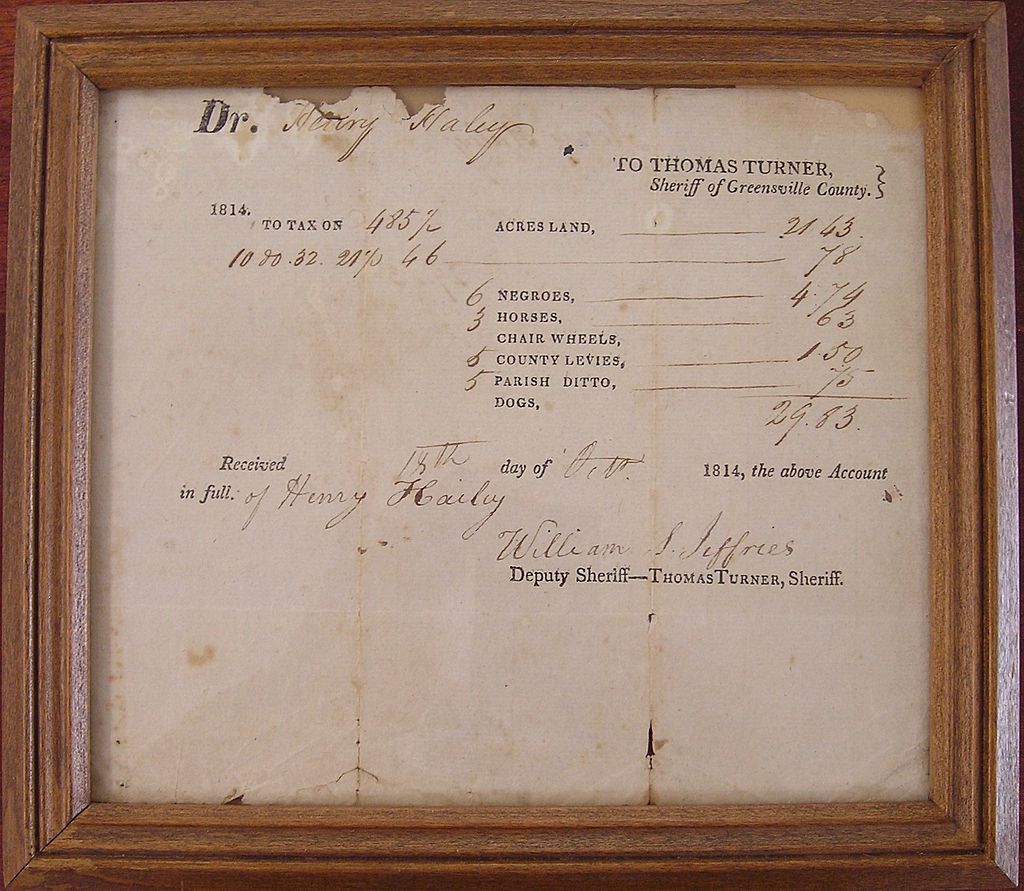 Dr. Henry Haley
TO THOMAS TURNER,
Sheriff of Greensville County.
1814.
TO TAX ON 485½ ACRES LAND, 21 43
10 do. 32. 46 78
6 NEGROES, 4.74
3 HORSES, 63
CHAIR WHEELS,
5 COUNTY LEVIES, 1.50
5 PARISH DITTO, 75
DOGS,
29.83.
Received 18th day of Octr. 1814, the above Account
in full. of Henry Hailey
William S. Jeffries
Deputy Sheriff—THOMAS TURNER, Sheriff.